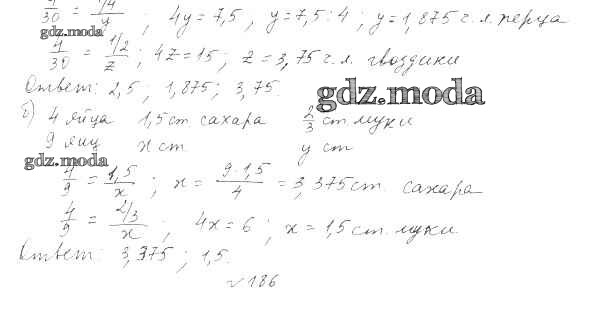 4/30 = 1/4/y ; 4y = 7,5 , y = 7,5 : 4 ; y = 1,875 ч. л. перца
gdz.moda
4/30 = 1/2/z ; 4z = 15 ; z = 3,75 ч. л. гвоздики
Ответ: 2,5 ; 1,875 ; 3,75.
gdz.moda
б) 4 яйца 1,5 ст сахара 2/3 ст муки
9 яиц x ст y ст
gdz.moda
4/9 = 1,5/x ; x = 9·1,5/4 = 3,375 ст сахара
4/9 = 2/3/x ; 4x = 6 ; x = 1,5 ст. муки
Ответ: 3,375 ; 1,5.
№ 186